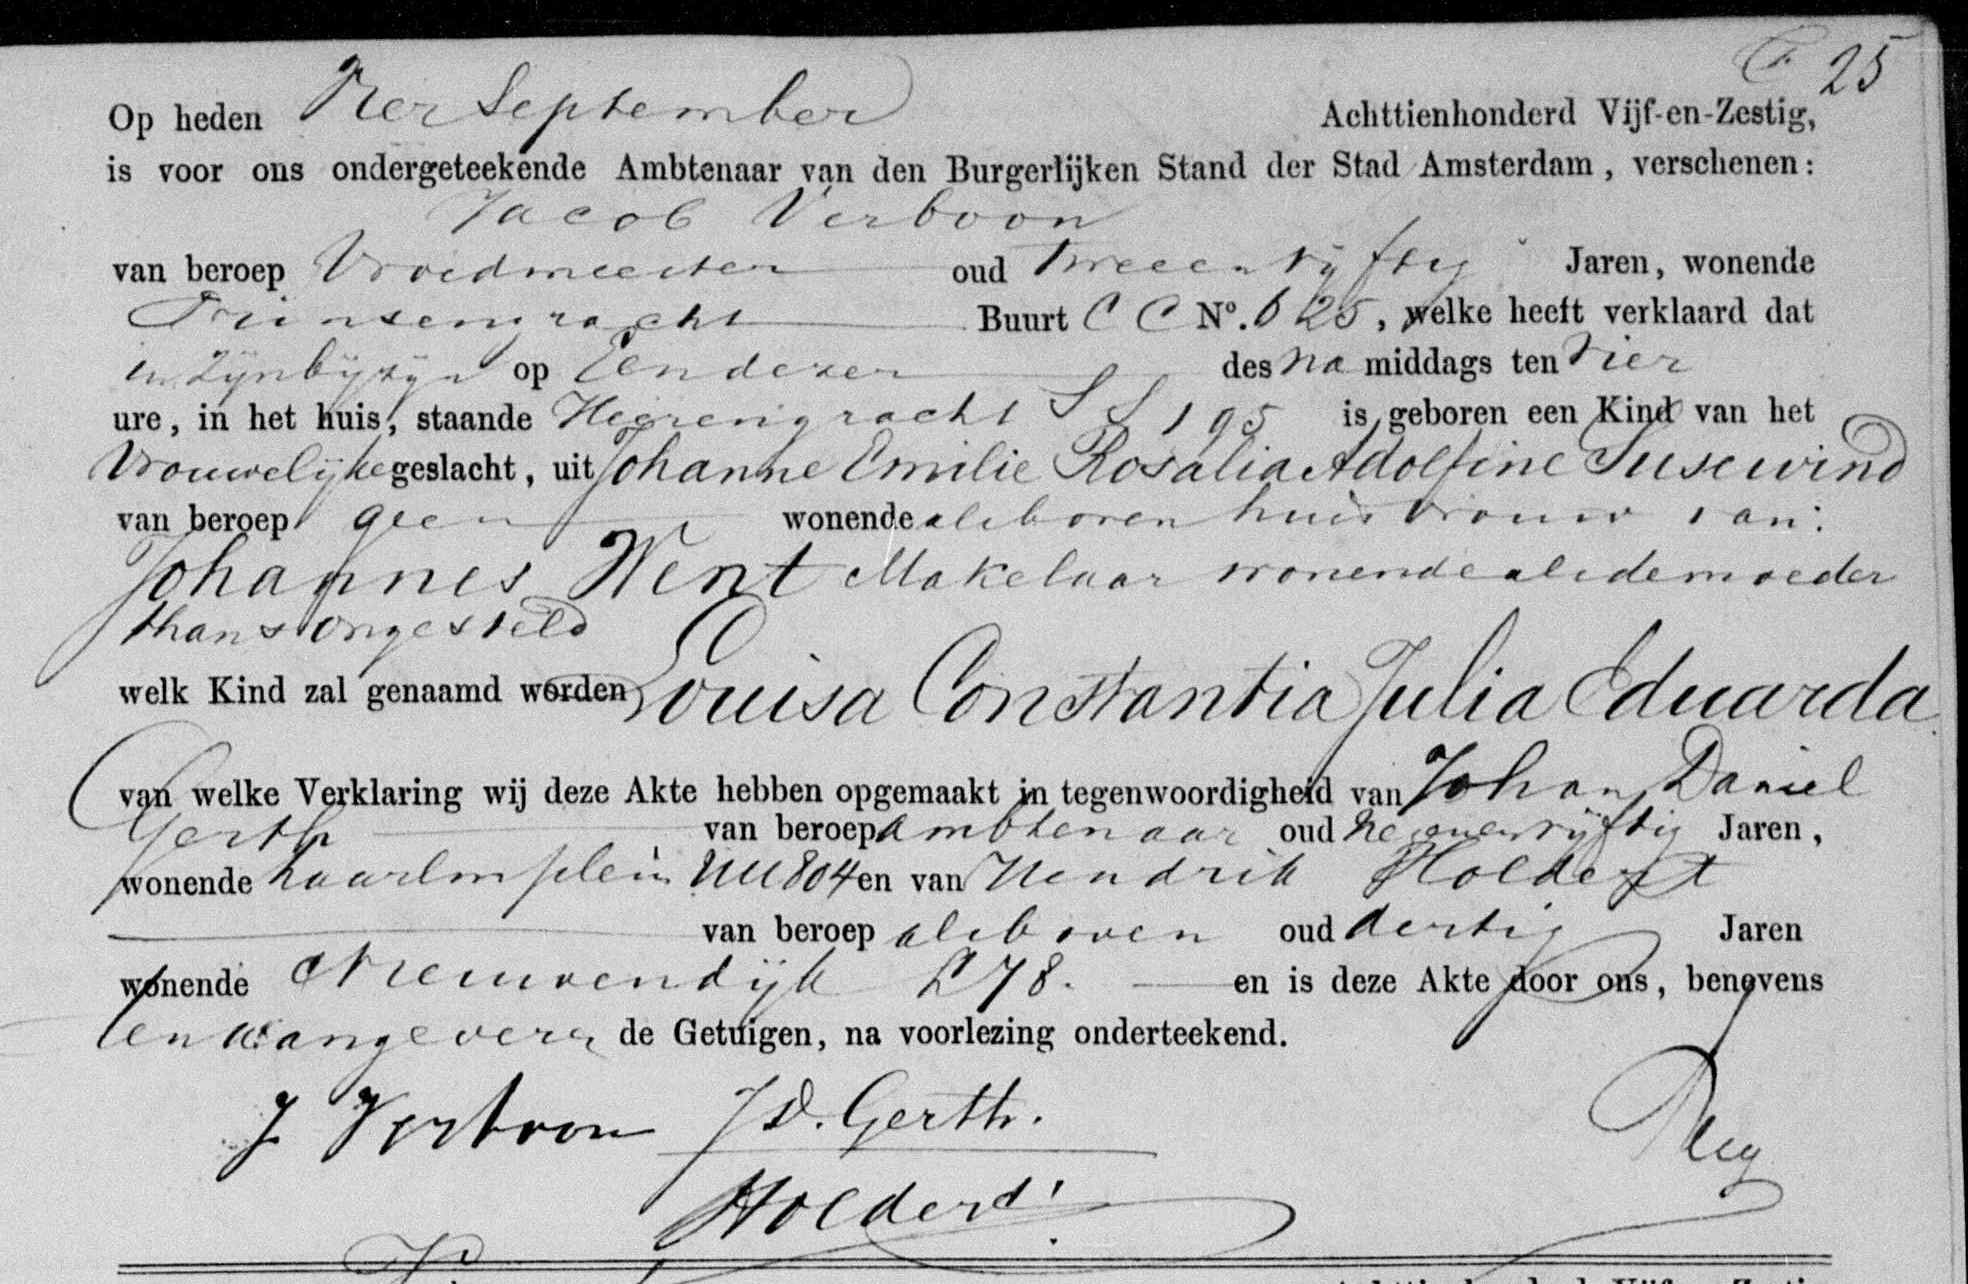 F 25
Op heden Vier September Achttienhonderd Vijf-en-Zestig,
is voor ons ondergeteekende Ambtenaar van den Burgerlijken Stand der Stad Amsterdam, verschenen:
Jacob Verboon
van beroep Vroedmeester oud Tweeenvijftig Jaren, wonende
Prinsengracht Buurt C C No. 625, welke heeft verklaard dat
in zijn bijzijn op Eendezer des na middags ten vier
ure, in het huis, staande Heerengracht S S 195 is geboren een Kind van het
Vrouwelijke geslacht, uit Johanne Emilie Rosalia Adolfine Susewind
van beroep geen wonende alsboven huisvrouw van:
Johannes Went Makelaar wonende als de moeder
thans ongesteld
welk Kind zal genaamd worden Louisa Constantia Julia Eduarda
van welke Verklaring wij deze Akte hebben opgemaakt in tegenwoordigheid van Johan Daniel
Gerth van beroep ambtenaar oud negenenvijftig Jaren,
wonende haarlmplein 804 en van Hendrik Holdert
van beroep alsboven oud dertig Jaren
wonende Nieuwendijk 278. en is deze Akte door ons, benevens
den aangever en de Getuigen, na voorlezing onderteekend.
J Verboon J D. Gerth.
Holdert